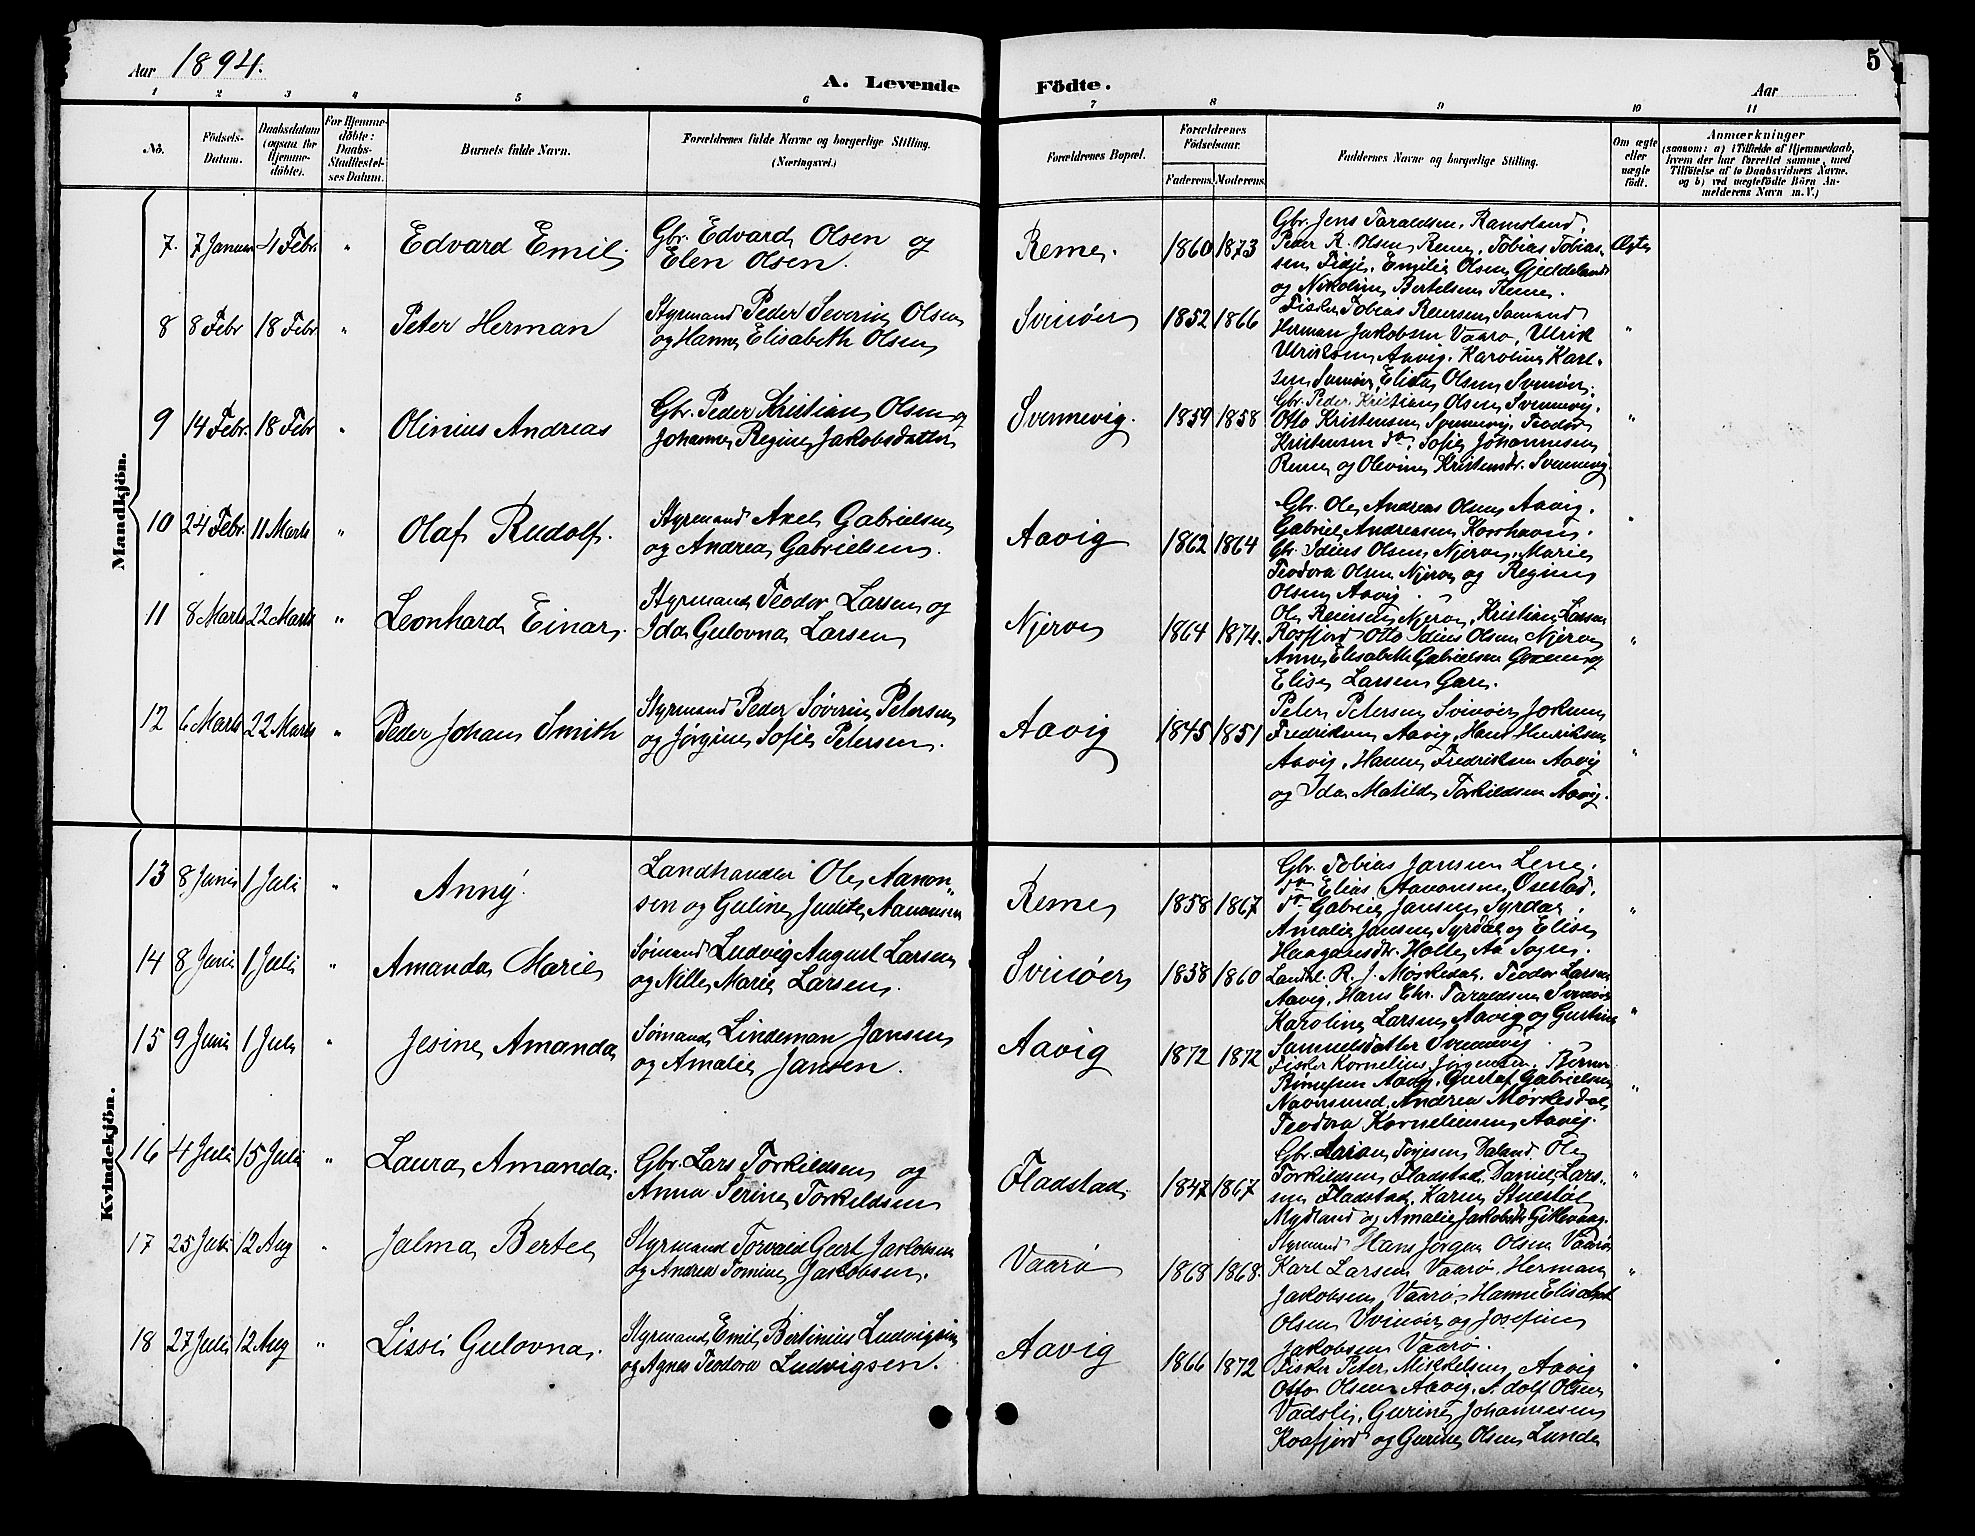 Aar 1894.
A. Levende Födte.
Aar
5
1 2 3 4 5 6 7 8 9 10 11
No.
Födsels-
Datum.
Daabsdatum
(ogsaa for
Hjemme-
döbte).
For Hjemme-
döbte:
Daabs-
Stadfæstel-
ses Datum.
Barnets fulde Navn.
Forældrenes fulde Navne og borgerlige Stilling.
(Næringsvei.)
Forældrenes Bopæl.
Forældrenes
Födselsaar.
Faderens. Moderens.
Faddernes Navne og borgerlige Stilling.
Om ægte
eller
uægte
födt.
Anmærkninger
(saasom: a) i Tilfælde af Hjemmedaab,
hvem der har forrettet samme, med
Tilföielse af to Daabsvidners Navne.
og b) ved uægtefödte Börn An-
melderens Navn m. V.)
Mandkjön.
7. 7 Januar 4 Febr. " Edvard Emil.
Gbr. Edvard Olsen og
Elen Olsen.
Reme. 1860 1873
Gbr. Jens Taraldsen, Ramsland,
Peder R. Olsen Reme, Tobias Tobias-
sen Fidje, Emilie Olsen Gjeddeland
og Nikoline Bertelsen Reme.
Ægte
8 8 Febr 18 Febr " Peter Herman
Styrmand Peder Severin Olsen
og Hanne Elisabeth Olsen
Svinöer 1852 1866
Fisker Tobias Reiersen, Sømand
Herman Jakobsen Vaarø, Ulrik
Ulriksen Aavig, Karoline Karl-
sen Svinöer, Elida Olsen Svinöer.
"
9 14 Febr. 18 Febr " Olinius Andreas
Gbr. Peder Kristian Olsen og
Johanne Regine Jakobsdatter
Svennevig. 1859 1858
Gbr. Peder Kristian Olsen Svennevig,
Otto Kristensen Svennevig, Teodor
Kristensen do, Sofie Johannesen
Reme og Olevine Kristensdr. Svennevig
"
10 24 Febr. 11 Marts " Olaf Rudolf.
Styrmand Axel Gabrielsen
og Andrea Gabrielsen.
Aavig 1862 1864
Gbr. Ole Andreas Olsen Aavig,
Gabriel Andreasen Korshavn,
Gbr. Idius Olsen Njerve, Marie
Teodora Olsen Njerve og Regine
Olsen Aavig.
"
11 8 Marts 22 Marts " Leonhard Einar.
Styrmand Teodor Larsen og
Ida Gulovna Larsen
Njerve 1864 1874.
Ole Reinsen Njerve, Kristian Larsen
Rosfjord Otto Idius Olsen Njerve
Anne Elisabeth Gabrielsen og
Elise Larsen Gare.
"
12 6 Marts 22 Marts " Peder Johan Smith
Styrmand Peder Søverin Petersen
og Jørgine Sofie Petersen.
Aavig 1845 1851
Peter Petersen Svinöer, Jokum
Fredriksen Aavig, Hans Henriksen
Aavig, Hanne Fredriksen Aavig
og Ida Matilde Torkildsen Aavig.
"
Kvindekjön.
13 8 Juni 1 Juli " Anny.
Landhandler Ole Aanon-
sen og Guline Judite Aanonsen
Reme 1858 1867
Gbr. Tobias Jansen Lene,
do Elias Aanonsen Orestad,
do Gabriel Jansen Syrdal,
Amalie Jansen Syrdal og Elise
Haagansdr. Holle Aa Sogn.
"
14 8 Juni 1 Juli " Amanda Marie
Sømand Ludvig August Larsen
og Nille Marie Larsen.
Svinöer 1858 1860
Landhl. R. J. Møskedal, Teodor Larsen
Aavig, Hans Chr. Taraldsen Svinöer
Karoline Larsen Aavig og Gustine
Samuelsdatter Svennevig
"
15 9 Juni 1 Juli " Jesine Amanda
Sømand Lindeman Jansen
og Amalie Jansen.
Aavig 1872 1872
Fisker Kornelius Jørgensen, Berner
Aavig, Gustaf Gabrielsen
Navnsund, Andrea Mørkesdal,
Teodora Korneliusen Aavig.
"
16 4 Juli 15 Juli " Laura Amanda.
Gbr. Lars Torkildsen og
Anna Serine Torkildsen
Fladstad. 1847 1867
Gbr. Aaron Torjesen Daland, Ole
Torkildsen Fladstad, Daniel Lars-
sen Fladstad, Karen Stuestøl
Mydland og Amalie Jakobsdr. Gitlevaag.
"
17 25 Juli 12 Aug " Jalma Bertel
Styrmand Torvald Geert Jakobsen
og Andrea Tomine Jakobsen.
Vaarø 1868 1868.
Styrmand Hans Jørgen Olsen Vaarø
Karl Larsen Vaarø, Herman
Jakobsen Vaarø, Hanne Elisabet
Olsen Svinöer og Josefine
Jakobsen Vaarø.
"
18 27 Juli 12 Aug " Lissi Gulovna.
Styrmand Emil Bertinius Ludvigsen
og Agnes Teodora Ludvigsen.
Aavig 1866 1872
Fisker Peter Mikkelsen, Aavig
Otto Olsen Aavig, Adolf Olsen
Vadsli, Gurine Johannesen
Koafjord og Gurine Olsen Lunde
"